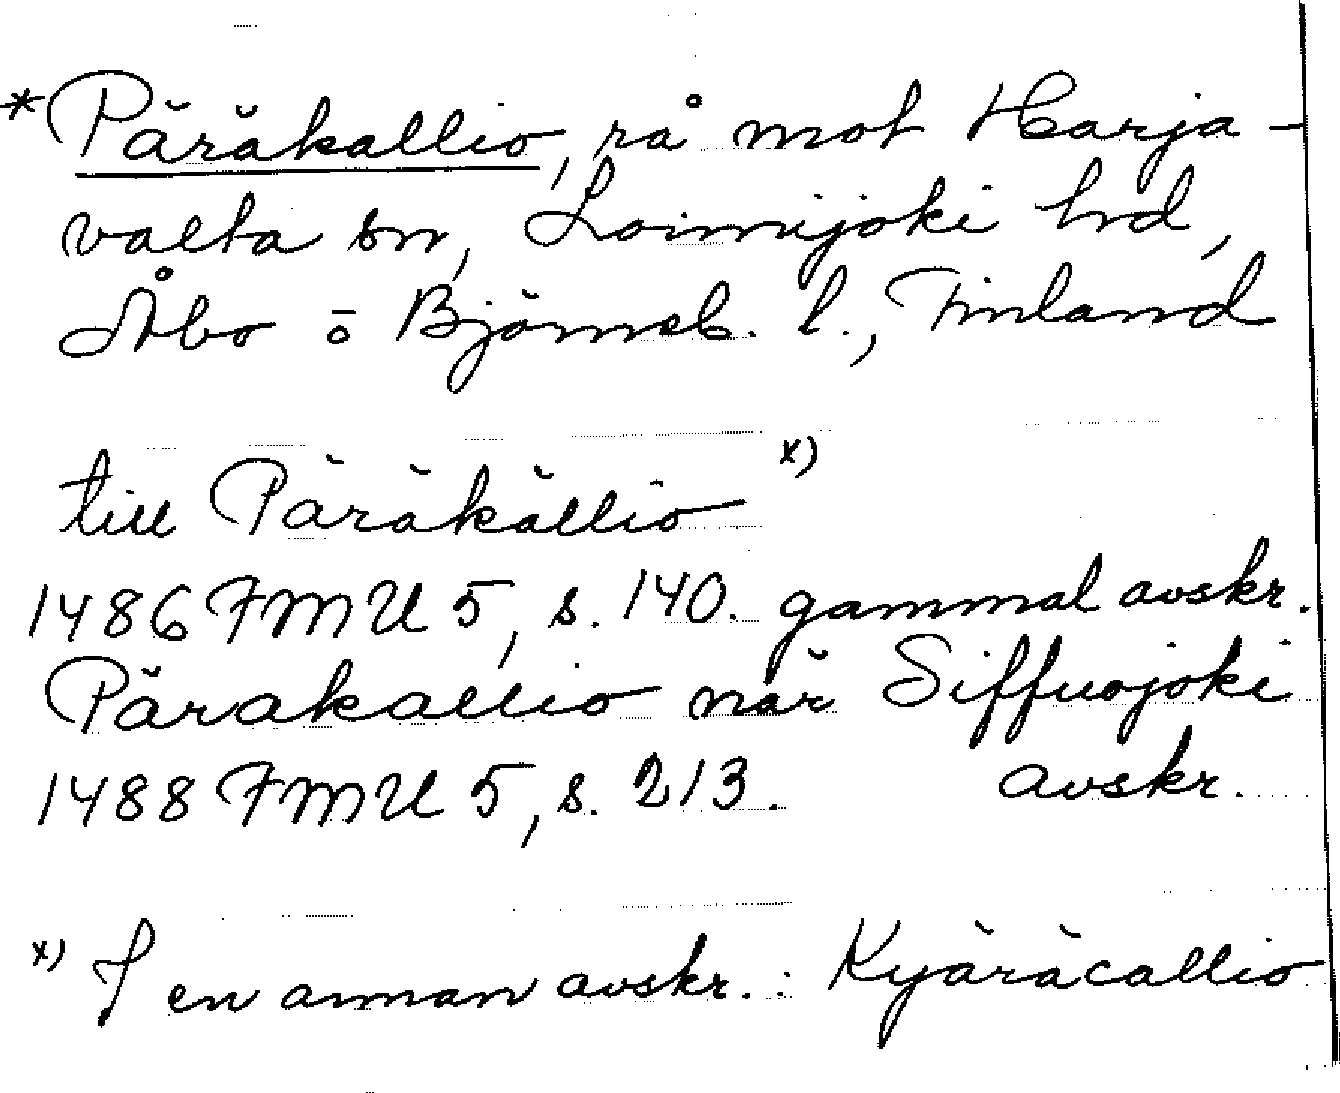 *Päräkallio, rå mot Harja-
valta sn, Loimijoki hd,
Åbo o Björneb. l., Finland
till Päräkällio x)
1486 FMU 5, s. 140. gammal avskr.
Pärakallio när Siffuojoki
1488 FMU 5, s. 213. avskr.
x) I en annan avskr. : Kyäräcallio